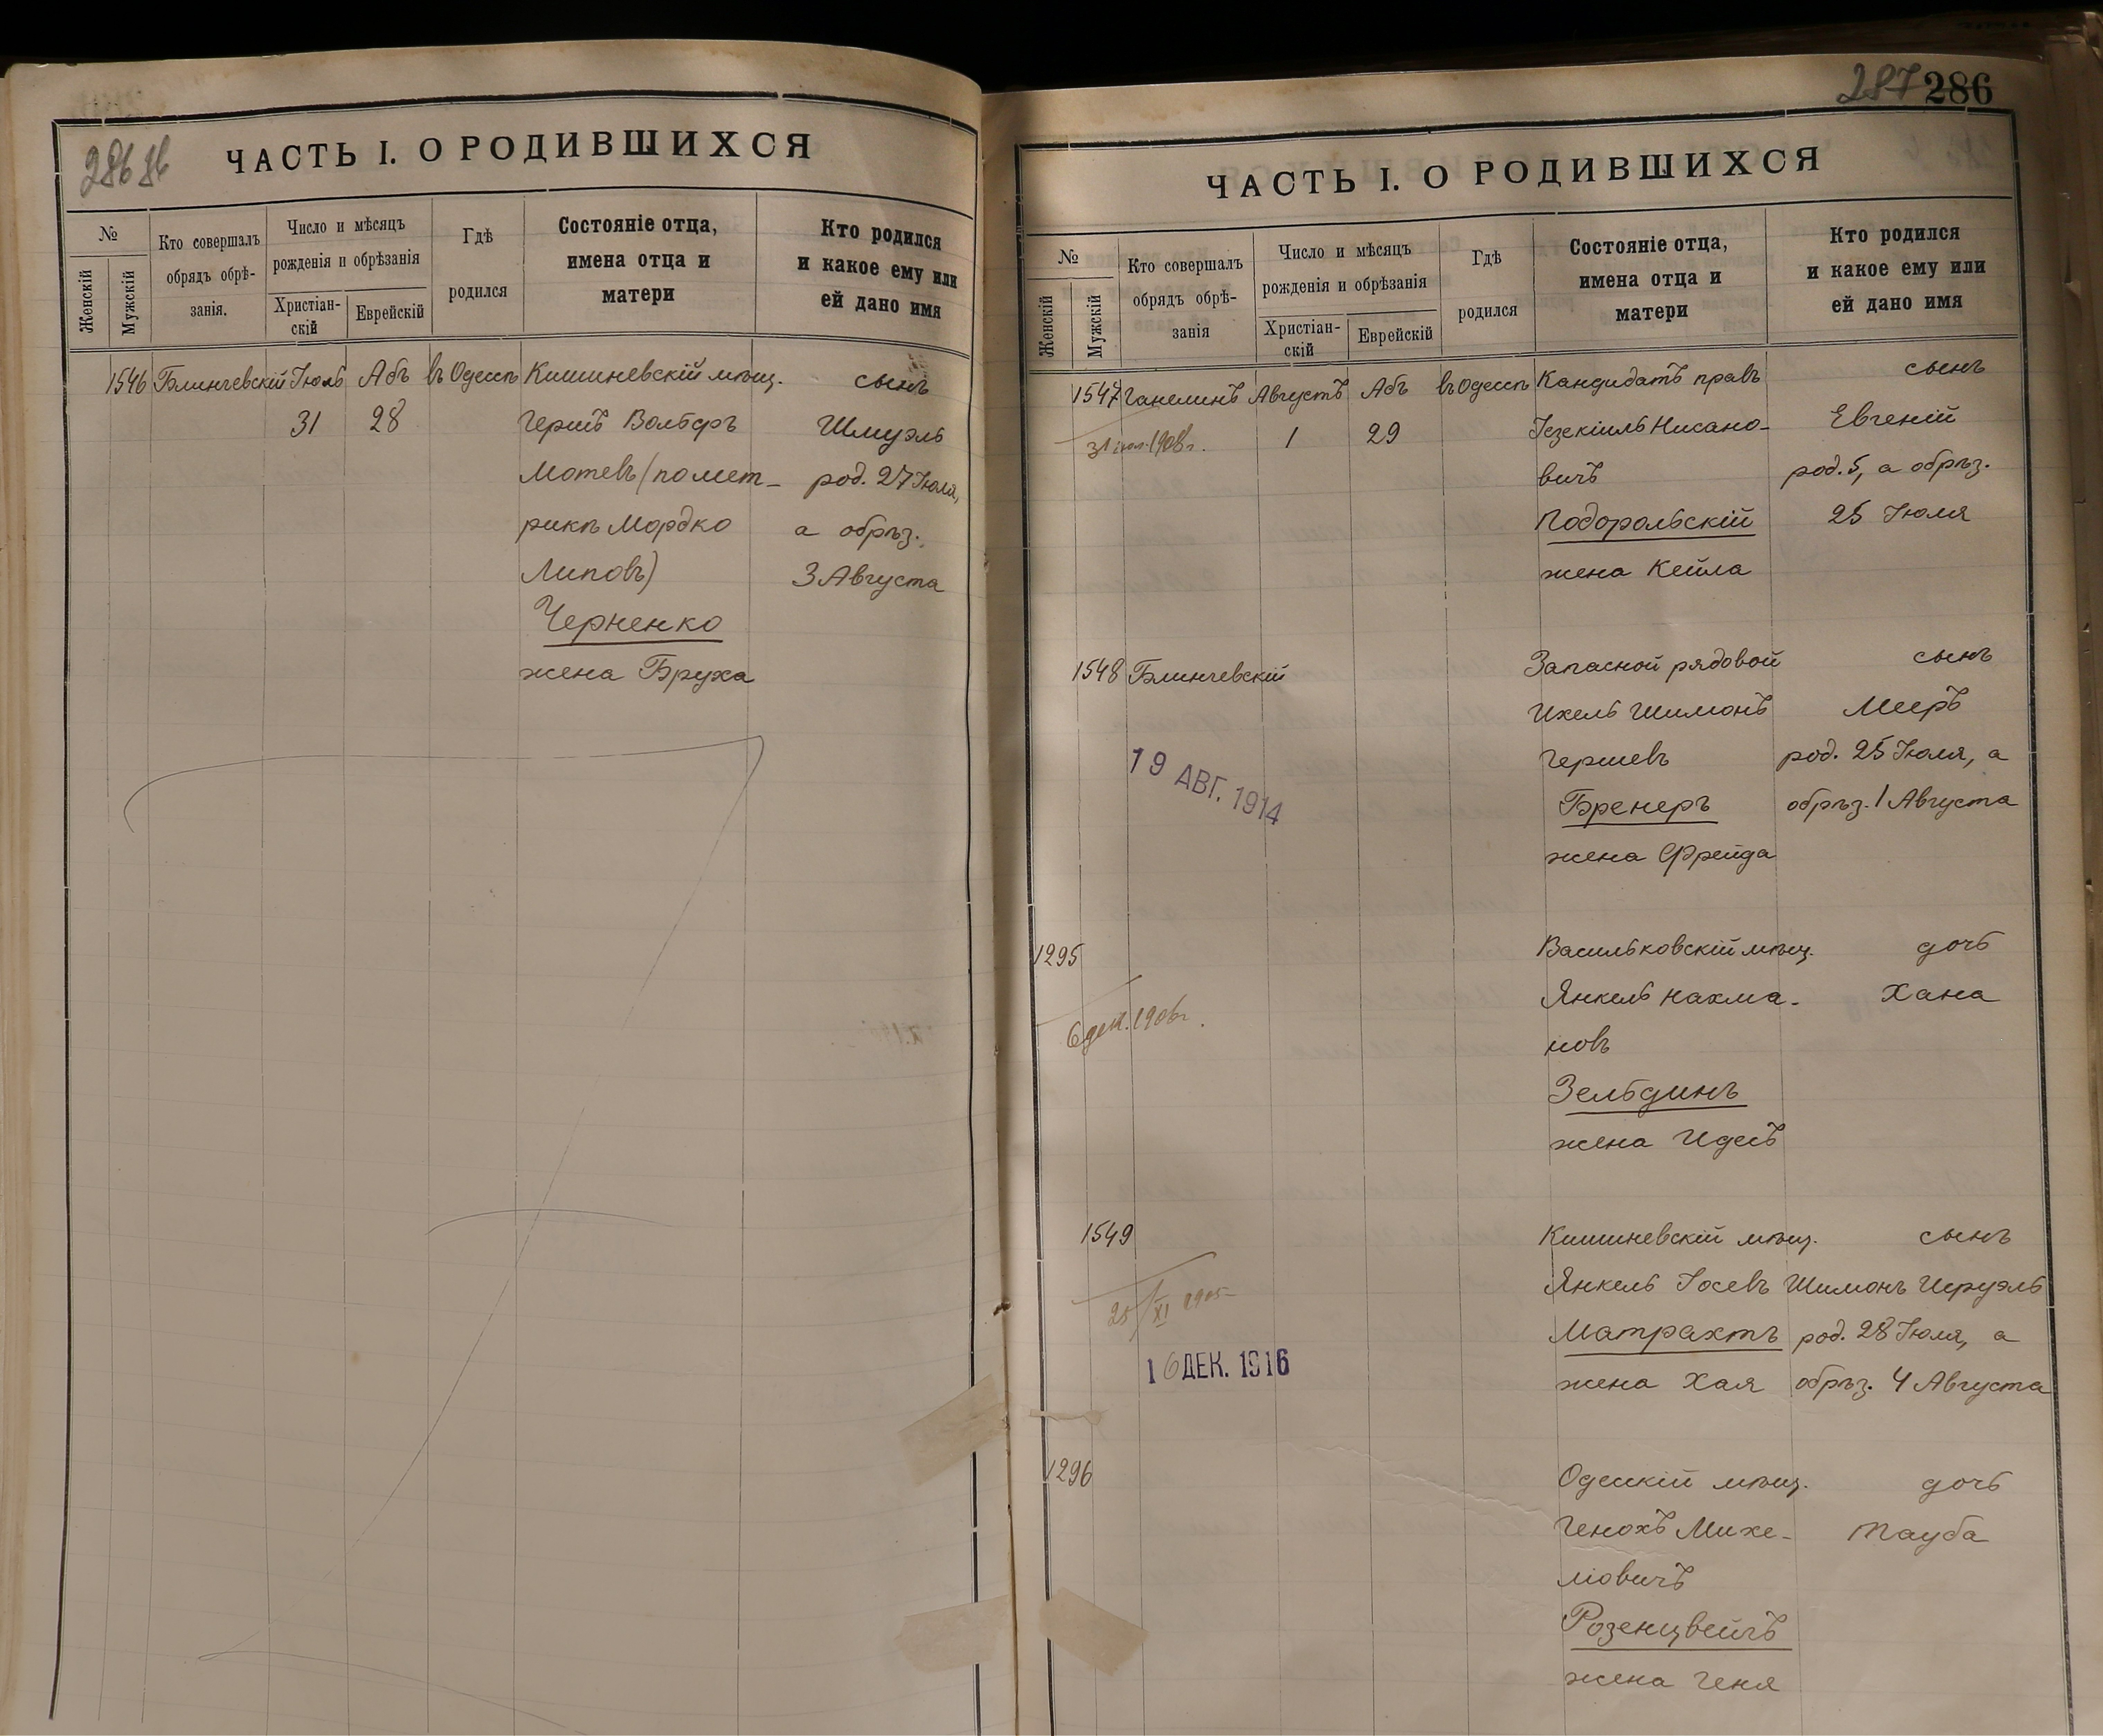 286 об
ЧАСТЬ I. О РОДИВШИХСЯ
№
Женскій
Мужскій
Кто совершалъ
обрядъ обрѣ-
занія.
Число и мѣсяцъ
рожденія и обрѣзанія
Христіан-
скій
Еврейскій
Гдѣ
родился
Состояніе отца,
имена отца и
матери
Кто родился
и какое ему или
ей дано имя
1546 Блинчевскій Іюль Абъ въ Одессѣ Кишиневскій мѣщ. сынъ
31 28 Гершъ Вольфъ Шмуэль
Мотевъ (по мет- род. 27 Іюля,
рикѣ Мордко а обрѣз.
Липовъ) 3 Августа
Черненко
жена Бруха
287 286
ЧАСТЬ I. О РОДИВШИХСЯ
№
Женскій
Мужскій
Кто совершалъ
обрядъ обрѣ-
занія
Число и мѣсяцъ
рожденія и обрѣзанія
Христіан-
скій
Еврейскій
Гдѣ
родился
Состояніе отца,
имена отца и
матери
Кто родился
и какое ему или
ей дано имя
1547 Ганелинъ Августъ Абъ въ Одессѣ Кандидатъ правъ сынъ
31 іюл. 1908 г. 1 29 Іезекіиль Нисано- Евгеній
вичъ род. 5, а обрѣз.
Подорольскій 25 Іюля
жена Кейла
1548 Блинчевскій Запасной рядовой сынъ
Ихель Шимонъ Мееръ
Гершевъ род. 25 Іюля, а
19 АВГ. 1914
Бренеръ обрѣз. 1 Августа
жена Фрейда
1295 Васильковскій мѣщ. дочь
Янкель Нахма- Хана
6 дек. 1906 г.
новъ
Зельдинъ
жена Идесъ
1549 Кишиневскій мѣщ. сынъ
Янкель Іосевъ Шимонъ Исруэль
25/XI 1905
Матрахтъ род. 28 Іюля, а
16 ДЕК. 1916
жена Хая обрѣз. 4 Августа
1296 Одесскій мѣщ. дочь
Генохъ Михе- Тауба
ліовичъ
Розенцвейгъ
жена Геня